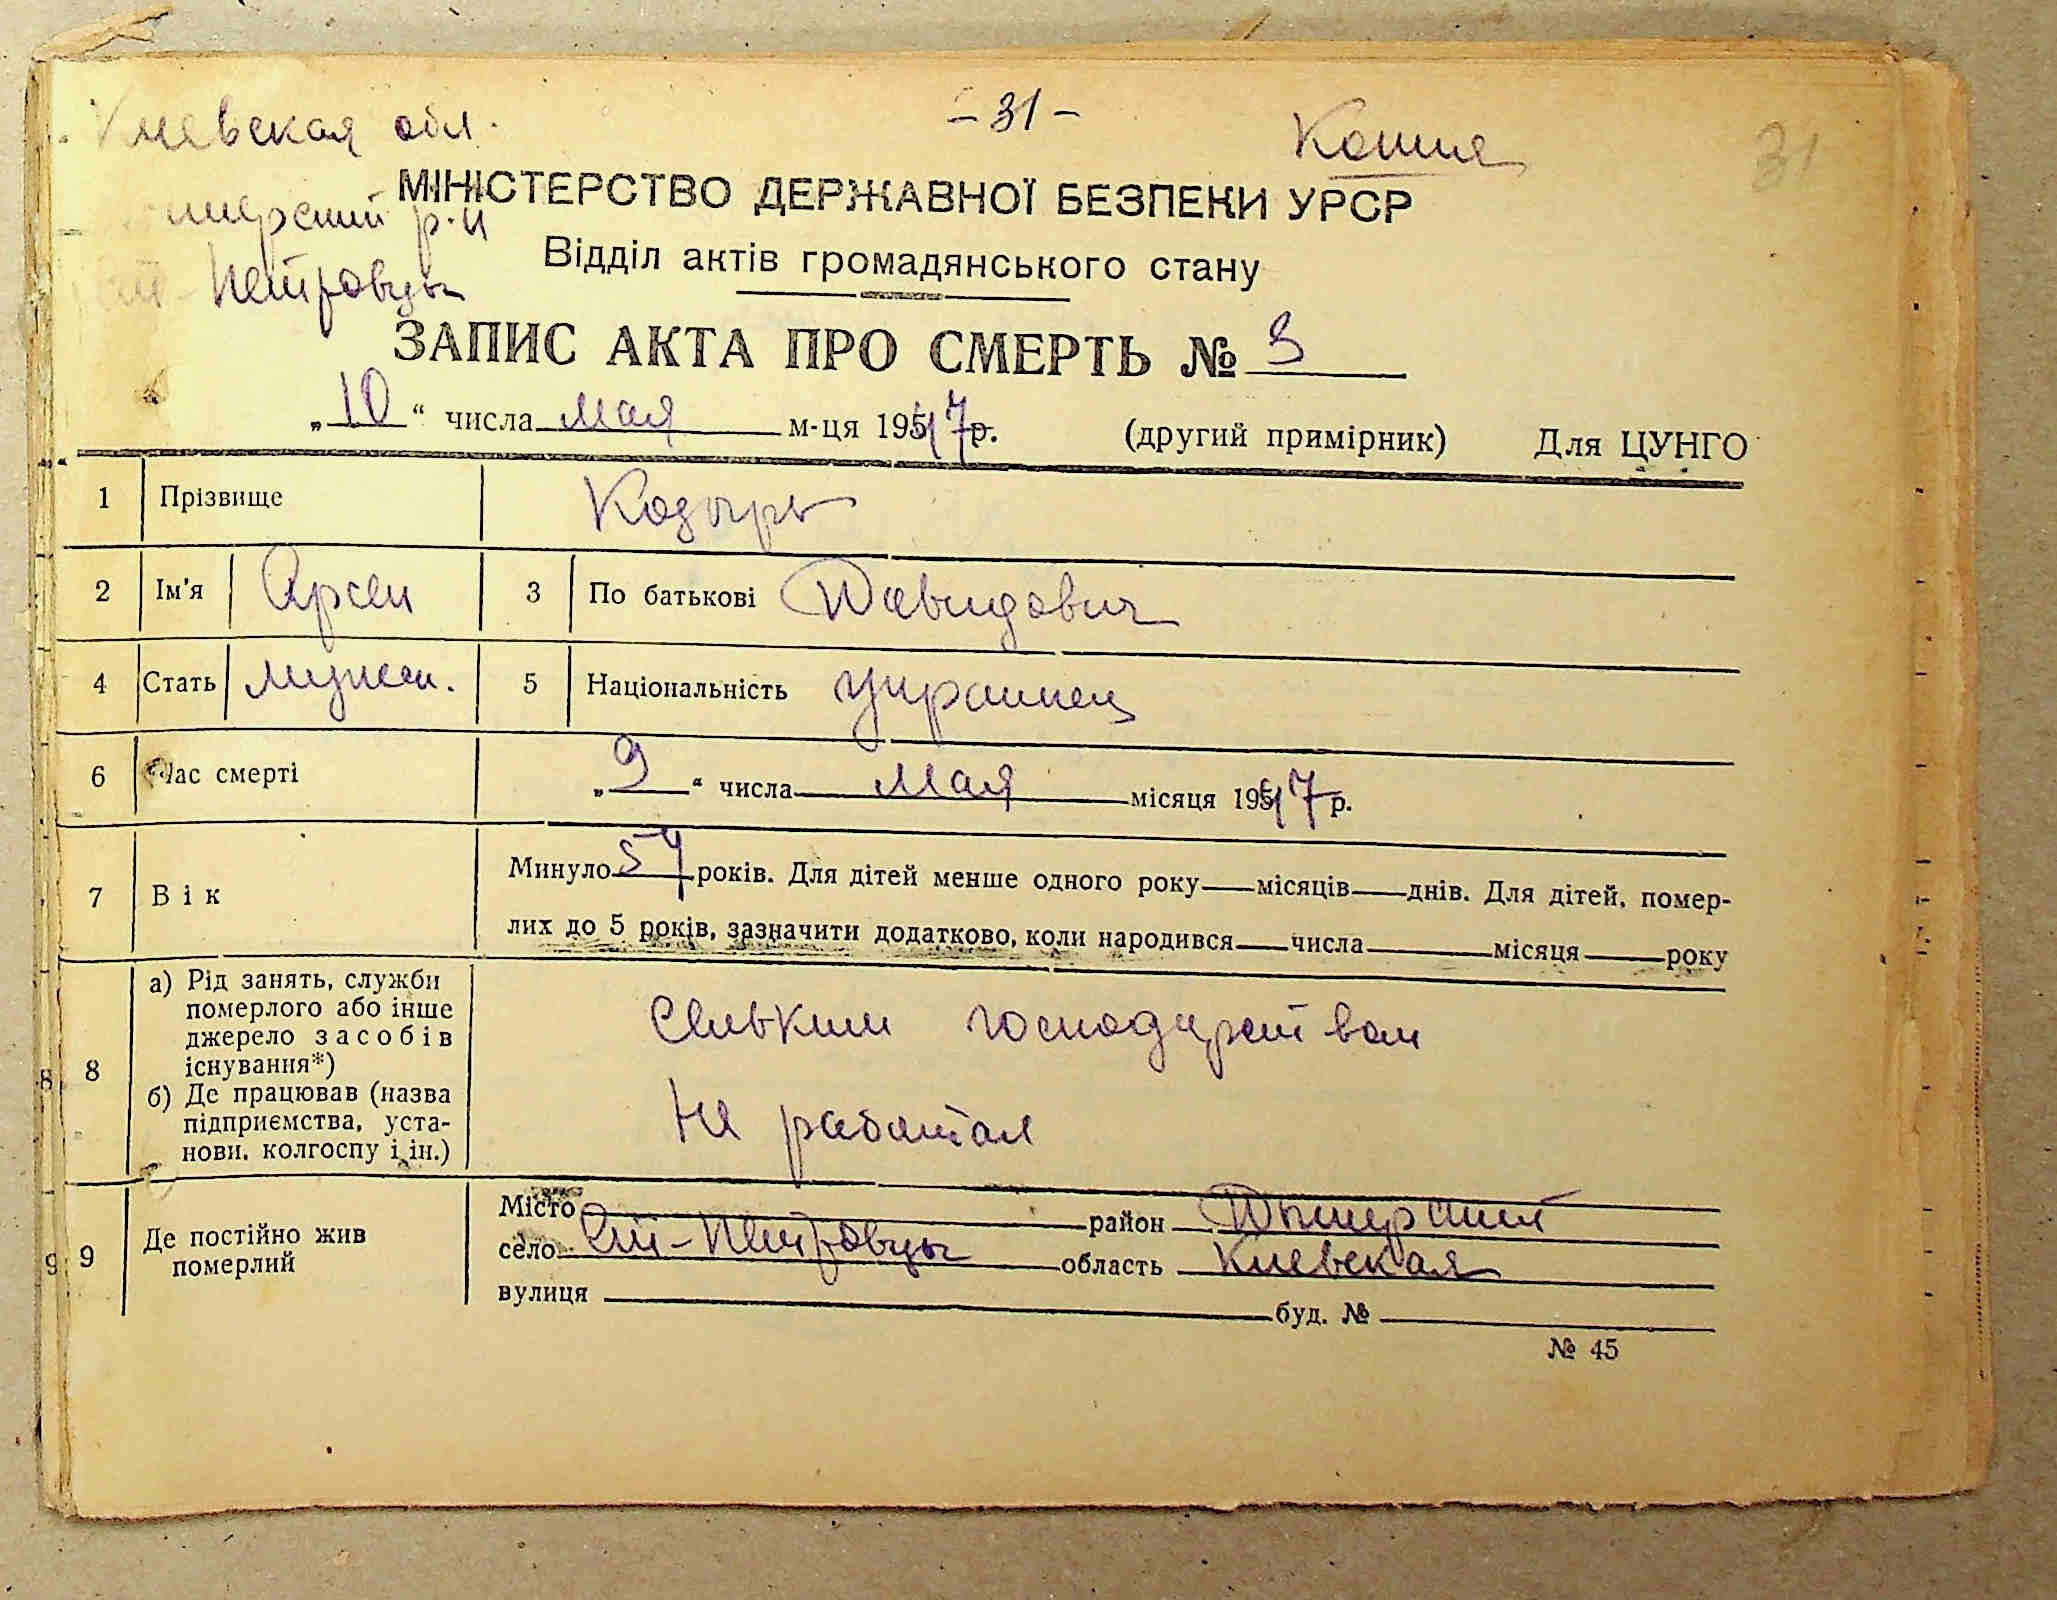 Киевская обл.
- 31 -
Копия
31
МІНІСТЕРСТВО ДЕРЖАВНОЇ БЕЗПЕКИ УРСР
р-н
Відділ актів громадянського стану
Петровцы
ЗАПИС АКТА ПРО СМЕРТЬ № 3
„10“ числа мая м-ця 1947р. (другий примірник) Для ЦУНГО
1 Прізвище Козырь
2 Ім'я Арсен 3 По батькові Давидович
4 Стать мужск. 5 Національність украинец
6 Час смерті „9“ числа мая місяця 1947р.
7 Вік Минуло 54 років. Для дітей менше одного року — місяців — днів. Для дітей, помер-
лих до 5 років, зазначити додатково, коли народився — числа — місяця — року
8 а) Рід занять, служби
померлого або інше
джерело засобів
існування*)
б) Де працював (назва
підприємства, уста-
нови, колгоспу і ін.)
господарством
не работал
9 Де постійно жив
померлий
Місто район Дымерский
село Ст-Петровцы область Киевская
вулиця буд. №
№ 45
8
9